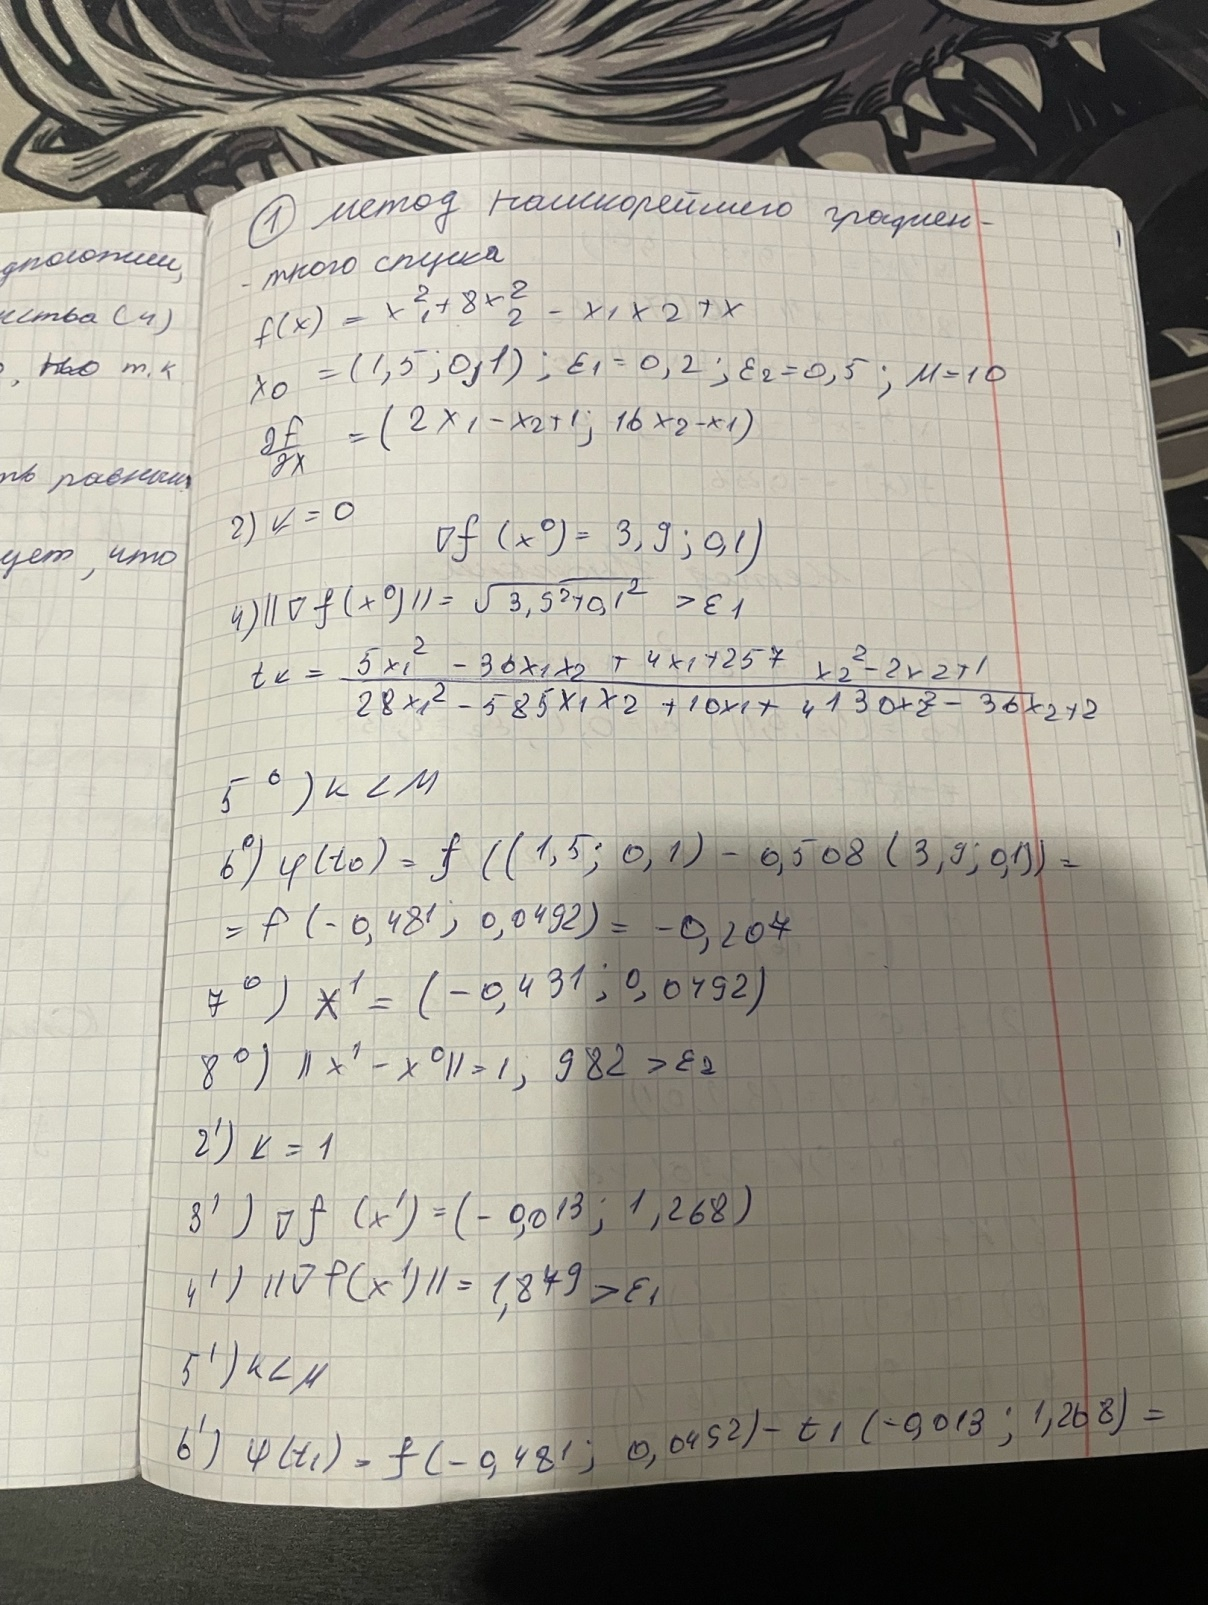 дположим,
нства (4)
, т.к
ть равным
ует, что
① метод наискорейшего градиен-
- тного спуска
f(x) = x₁² + 8x₂² - x₁x2 + x
x0 = (1,5; 0,1); ε1 = 0,2; ε2 = 0,5; M=10
∂f/∂x = (2x₁ - x₂+1; 16x₂-x1)
2) k = 0
∇f (x⁰) = 3,9; 0,1)
4) ||∇f(x⁰)|| = √3,9²+0,1² > ε1
tк = (5x₁² - 36x₁x₂ + 4x₁+257 x₂² - 2x2+1) / (28x₁² - 585x₁x2 + 10x₁ + 4130x₂² - 36x₂+2)
5⁰) k < M
6⁰) φ(t0) = f ((1,5; 0,1) - 0,508 (3,9; 0,1)) =
= f (-0,481; 0,0492) = -0,207
7⁰) x¹ = (-0,431; 0,0492)
8⁰) ||x¹ - x⁰|| = 1,982 > ε2
2') k = 1
3') ∇f (x¹) = (-0,013; 1,268)
4') ||∇f(x¹)|| = 1,879 > ε1
5') k < M
6') φ(t1) = f(-0,481; 0,0492) - t1 (-0,013; 1,268) =